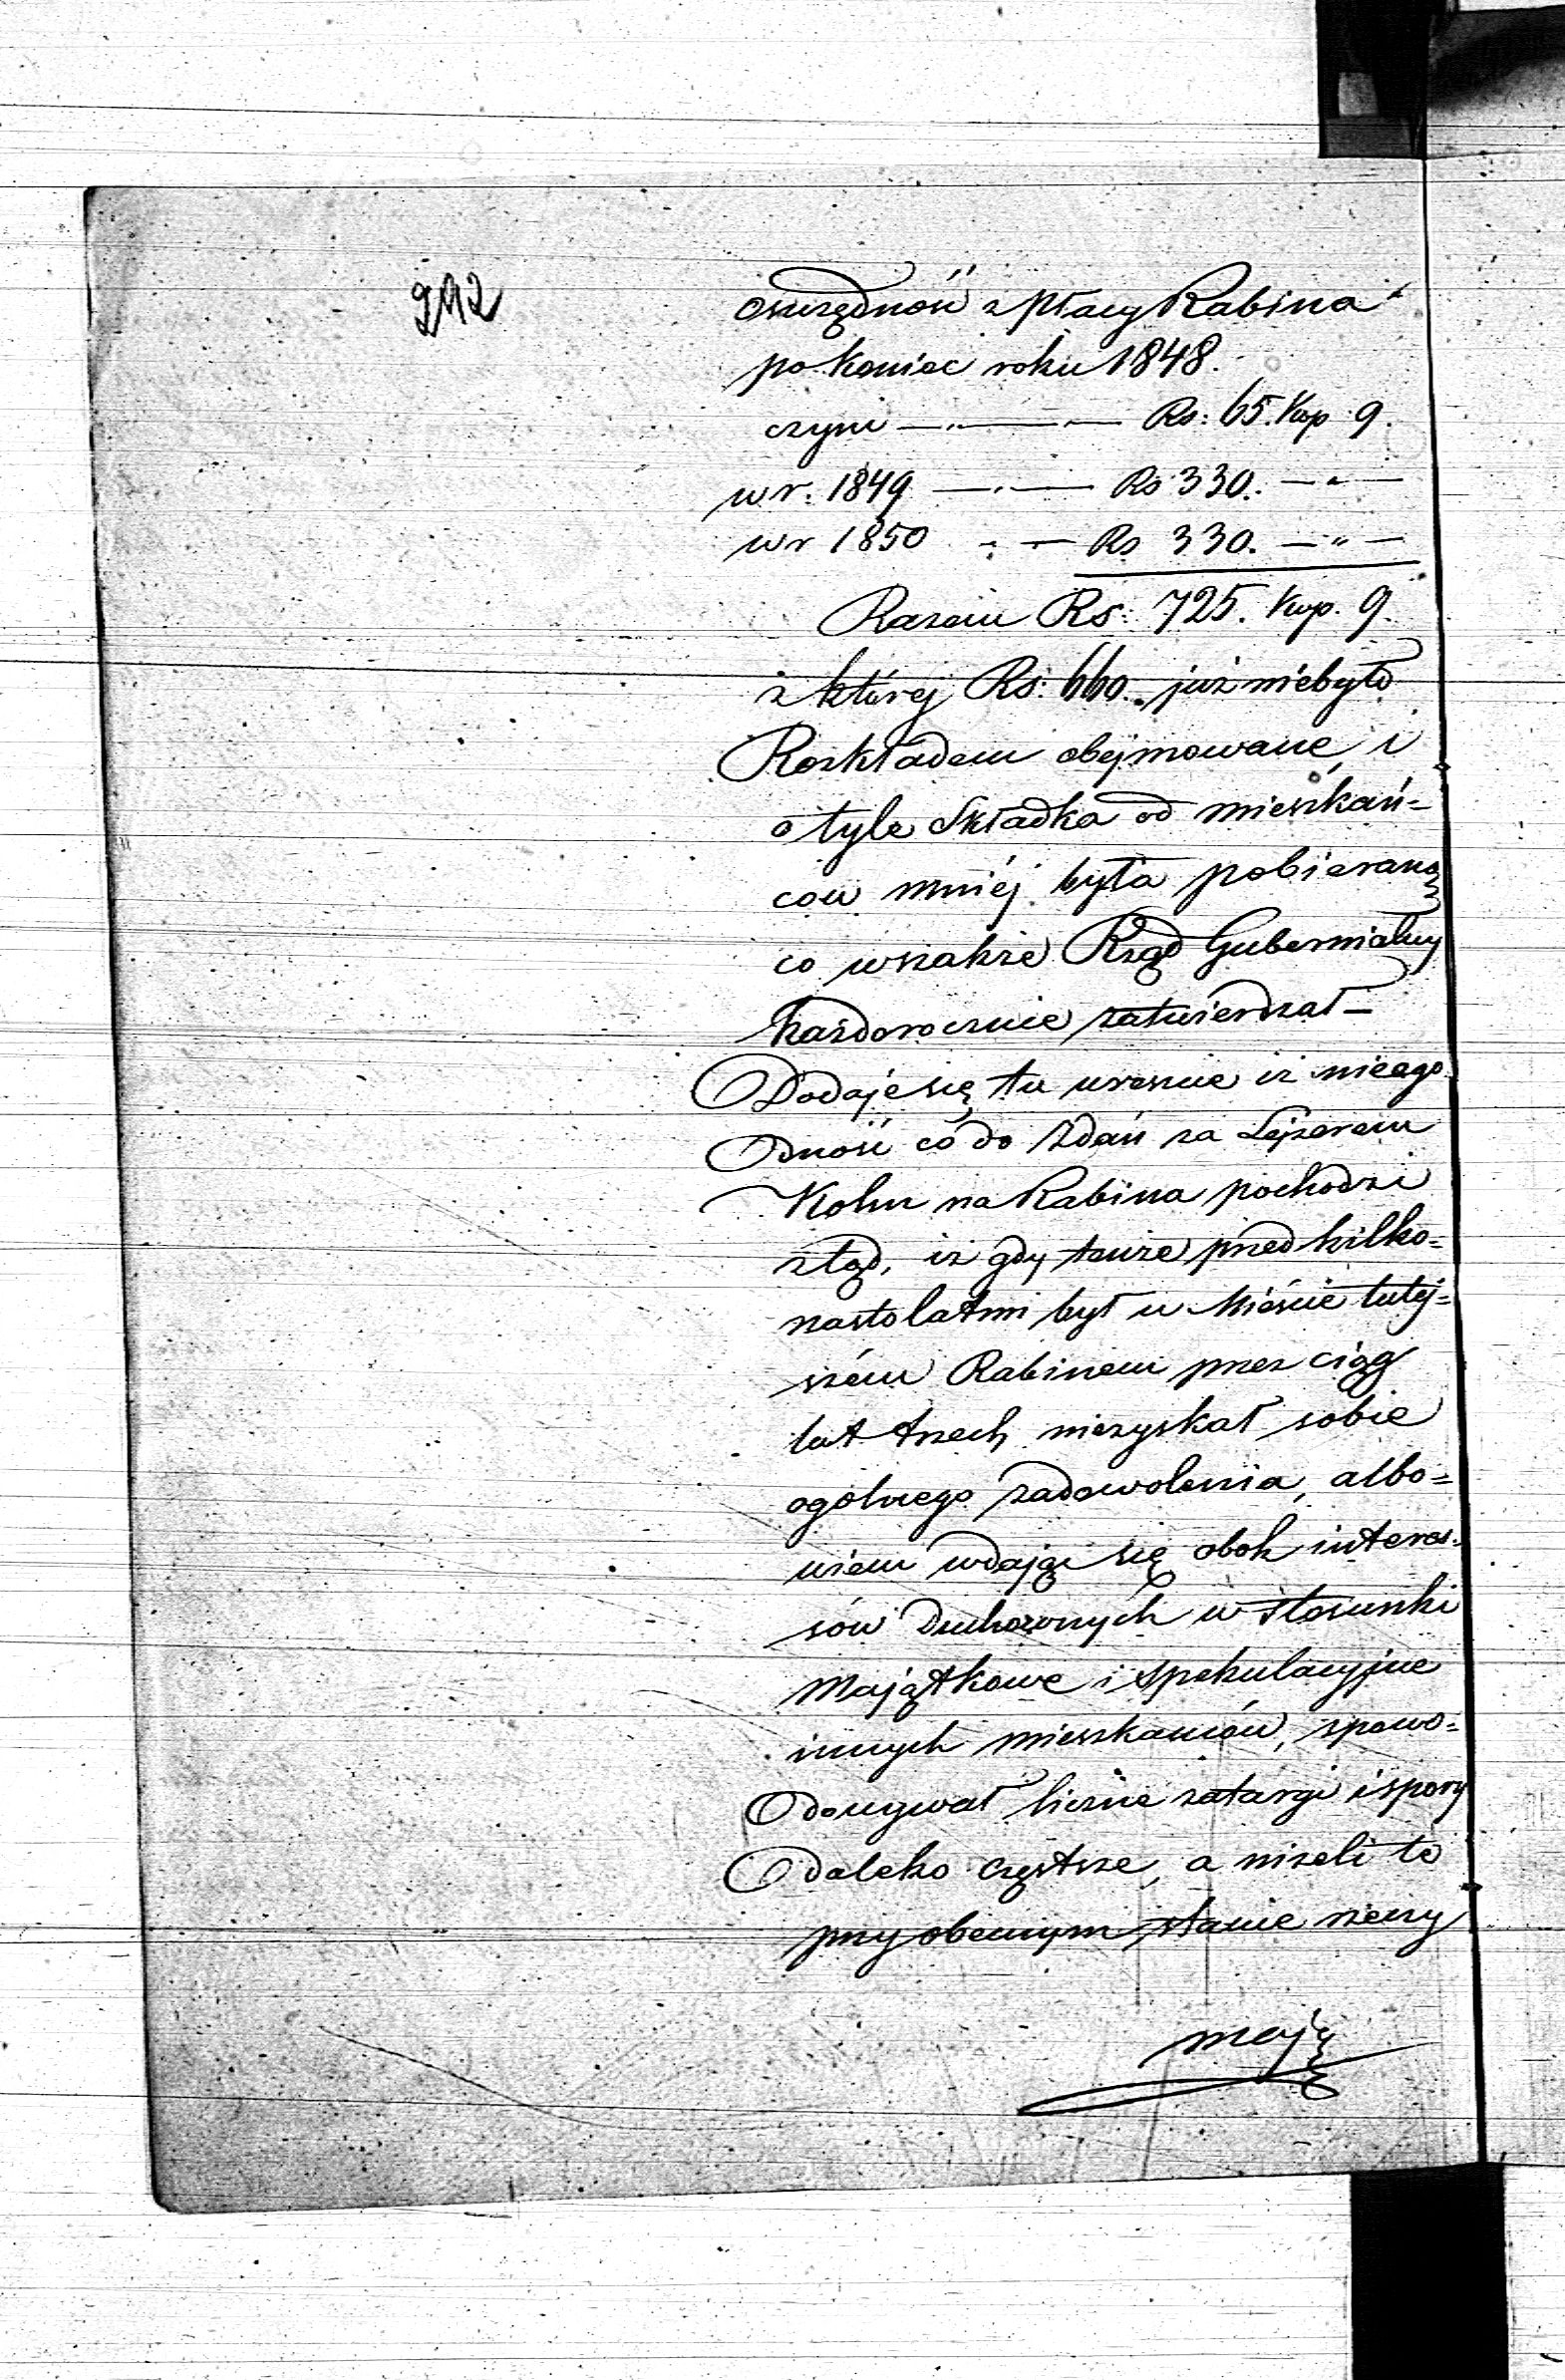 292
oszczędność z płacy Rabina
po koniec roku 1848.
czyni —„— Rs: 65. Kop 9.
w r. 1849 —„— Rs 330. —„—
w r 1850 „ — Rs 330. —„—
Razem Rs: 725. Kop. 9.
z której Rs: 660. już niebyło
Rozkładem objmowane, i
o tyle Składka od mieszkań=
ców mniéj była pobieraną
co wszakże Rząd Gubernialny
każdorocznie zatwierdzał –
Dodaje się tu wreszcie iż niezgo
dność co do Zdań za Lejzerem
Kohn na Rabina pochodzi
ztąd, iż gdy tenże przed kilko=
nastolatmi był w Mieście tutej=
szém Rabinem przez ciąg
lat trzech niezyskał sobie
ogólnego zadowolenia, albo=
wiem wdając się obok interes=
sów duchownych w stosunki
Majątkowe i spekulacyjne
innych mieszkańców, spowo=
dowywał liczne zatargi i spory
daleko częstsze, a niżeli to
przy obecnym stanie rzeczy
mają